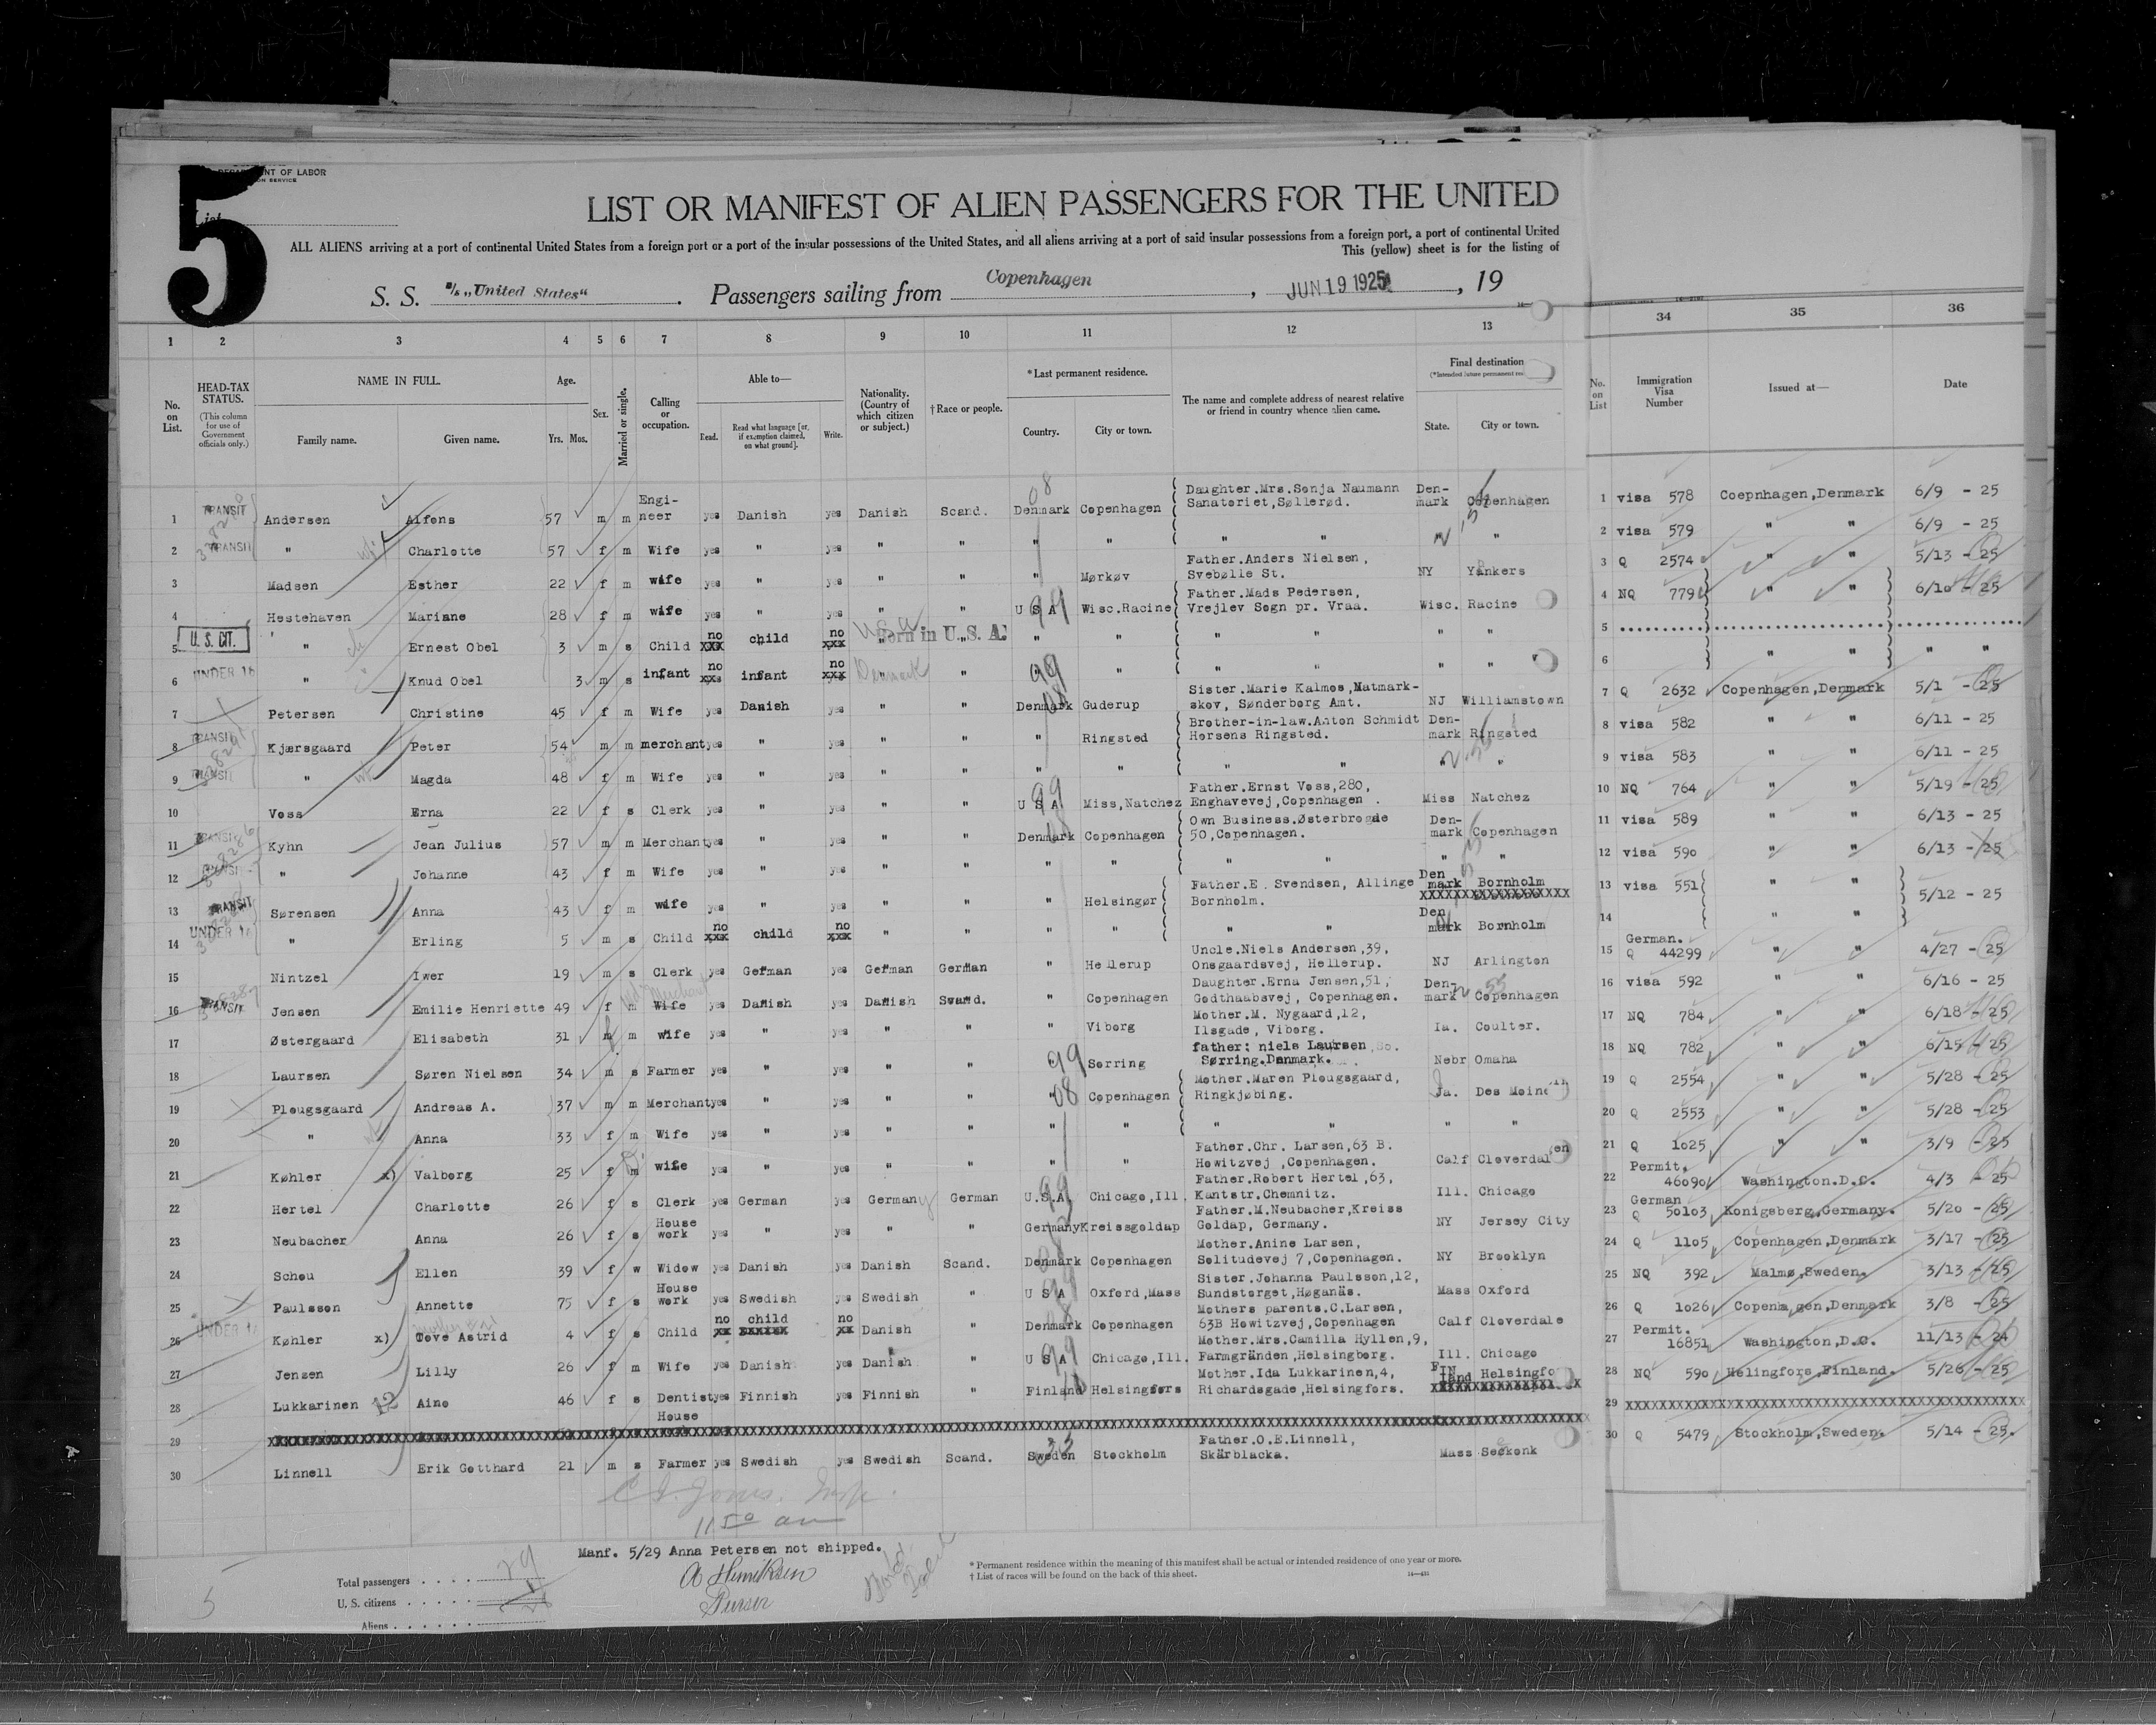 5
DEPARTMENT OF LABOR
List
LIST OR MANIFEST OF ALIEN PASSENGERS FOR THE UNITED
ALL ALIENS arriving at a port of continental United States from a foreign port or a port of the insular possessions of the United States, and all aliens arriving at a port of said insular possessions from a foreign port, a port of continental United
This (yellow) sheet is for the listing of
S. S. s/s „United States“ . Passengers sailing from Copenhagen , JUN 19 1925 , 19
1 2 3 4 5 6 7 8 9 10 11 12 13 34 35 36
No. on List. HEAD-TAX STATUS. (This column for use of Government officials only.) NAME IN FULL. Family name. Given name. Age. Yrs. Mos. Sex. Married or single. Calling or occupation. Able to— Read. Read what language [or, if exemption claimed, on what ground]. Write. Nationality. (Country of which citizen or subject.) † Race or people. * Last permanent residence. Country. City or town. The name and complete address of nearest relative or friend in country whence alien came. Final destination State. City or town. No. on List Immigration Visa Number Issued at— Date
1 TRANSIT Andersen Alfons 57 m m Engi-neer yes Danish yes Danish Scand. Denmark Copenhagen Daughter.Mrs.Sonja Naumann Sanatoriet,Søllerød. Den-mark Copenhagen 1 visa 578 Coepnhagen,Denmark 6/9 - 25
2 TRANSIT " Charlotte 57 f m Wife yes " yes " " " " " " " " 2 visa 579 " " 6/9 - 25
3 Madsen Esther 22 f m wife yes " yes " " " Mørkøv Father.Anders Nielsen, Svebølle St. NY Yonkers 3 Q 2574 " " 5/13 - 25
4 Hestehaven Mariane 28 f m wife yes " yes " " U S A Wisc.Racine Father.Mads Pedersen, Vrejlev Sogn pr. Vraa. Wisc. Racine 4 NQ 779 " " 6/10 - 25
5 U. S. CIT. " Ernest Obel 3 m s Child no xxx child no xxx Born in U. S. A. " " " " " " " 5
6 UNDER 16 " Knud Obel 3 m s infant no xxs infant no xxx Denmark " " " " " " 6 " " " "
7 Petersen Christine 45 f m Wife yes Danish yes " " Denmark Guderup Sister.Marie Kalmos,Natmark-skov, Sønderborg Amt. NJ Williamstown 7 Q 2632 Copenhagen,Denmark 5/1 - 25
8 TRANSIT Kjærsgaard Peter 54 m m merchant yes " yes " " " Ringsted Brother-in-law.Anton Schmidt Horsens Ringsted. Den-mark Ringsted 8 visa 582 " " 6/11 - 25
9 TRANSIT " Magda 48 f m Wife yes " yes " " " " " " " " 9 visa 583 " " 6/11 - 25
10 Voss Erna 22 f s Clerk yes " yes " " U S A Miss,Natchez Father.Ernst Voss,280, Enghavevej,Copenhagen . Miss Natchez 10 NQ 764 " " 5/19 - 25
11 TRANSIT Kyhn Jean Julius 57 m m Merchant yes " yes " " Denmark Copenhagen Own Business.Østerbrogade 50,Copenhagen. Den-mark Copenhagen 11 visa 589 " " 6/13 - 25
12 TRANSIT " Johanne 43 f m Wife yes " yes " " " " " " " " 12 visa 590 " " 6/13 - 25
13 TRANSIT Sørensen Anna 43 f m wife yes " yes " " " Helsingør Father.E. Svendsen, Allinge Bornholm. Den mark Bornholm 13 visa 551 " " 5/12 - 25
14 UNDER 16 " Erling 5 m s Child no xxx child no xxx " " " " " " Den mark Bornholm 14 " "
15 Nintzel Iwer 19 m s Clerk yes German yes German German " Hellerup Uncle.Niels Andersen,39, Onsgaardsvej, Hellerup. NJ Arlington 15 German. Q 44299 " " 4/27 - 25
16 TRANSIT Jensen Emilie Henriette 49 f m Wife yes Danish yes Danish Scand. " Copenhagen Daughter.Erna Jensen,51, Godthaabsvej, Copenhagen. Den-mark Copenhagen 16 visa 592 " " 6/16 - 25
17 Østergaard Elisabeth 31 f m wife yes " yes " " " Viborg Mother.M. Nygaard,12, Ilsgade, Viborg. Ia. Coulter. 17 NQ 784 " " 6/18 - 25
18 Laursen Søren Nielsen 34 m s Farmer yes " yes " " " Sørring father: niels Laursen Sørring.Danmark. Nebr Omaha 18 NQ 782 " " 6/15 - 25
19 Plougsgaard Andreas A. 37 m m Merchant yes " yes " " " Copenhagen Mother.Maren Plougsgaard, Ringkjøbing. Ja. Des Moine 19 Q 2554 " " 5/28 - 25
20 " Anna 33 f m Wife yes " yes " " " " " " " " 20 Q 2553 " " 5/28 - 25
21 Køhler x) Valborg 25 f m wife yes " yes " " " " Father.Chr. Larsen,63 B. Howitzvej ,Copenhagen. Calf Cloverdal 21 Q 1025 " " 3/9 - 25
22 Hertel Charlotte 26 f s Clerk yes German yes Germany German U.S.A. Chicago,Ill. Father.Robert Hertel,63, Kantstr.Chemnitz. Ill. Chicago 22 Permit. 46090 Washington.D.C. 4/3 - 25
23 Neubacher Anna 26 f s House work yes " yes " " Germany Kreissgoldap Father.M.Neubacher,Kreiss Goldap, Germany. NY Jersey City 23 German Q 50103 Konigsberg,Germany. 5/20 - 25
24 Schou Ellen 39 f w Widow yes Danish yes Danish Scand. Denmark Copenhagen Mother.Anine Larsen, Solitudevej 7,Copenhagen. NY Brooklyn 24 Q 1105 Copenhagen,Denmark 3/17 - 25
25 Paulsson Annette 75 f s House work yes Swedish yes Swedish " U S A Oxford,Mass Sister.Johanna Paulsson,12, Sundstorget,Høganäs. Mass Oxford 25 NQ 392 Malmø,Sweden. 3/13 - 25
26 UNDER 16 Køhler x) Tove Astrid 4 f s Child no xx child no xx Danish " Denmark Copenhagen Mothers parents.C.Larsen, 63B Howitzvej,Copenhagen Calf Cloverdale 26 Q 1026 Copenha gen,Denmark 3/8 - 25
27 Jensen Lilly 26 f m Wife yes Danish yes Danish " U S A Chicago,Ill. Mother.Mrs.Camilla Hyllen,9, Farmgränden,Helsingborg. Ill. Chicago 27 Permit. 16851 Washington,D.C. 11/13 - 24
28 Lukkarinen Aino 46 f s Dentist yes Finnish yes Finnish " Finland Helsingfors Mother.Ida Lukkarinen,4, Richardsgade,Helsingfors. FIN land Helsingfo 28 NQ 590 Helingfors,Finland. 5/26 - 25
29 House 29
30 Linnell Erik Gotthard 21 m s Farmer yes Swedish yes Swedish Scand. Sweden Stockholm Father.O.E.Linnell, Skärblacka. Mass Seekonk 30 Q 5479 Stockholm,Sweden. 5/14 - 25.
11 50 am
Manf. 5/29 Anna Petersen not shipped.
A Henriksen
Purser
Total passengers . . . . 29
U. S. citizens . . . . .
Aliens . . . . . .
5
* Permanent residence within the meaning of this manifest shall be actual or intended residence of one year or more.
† List of races will be found on the back of this sheet.